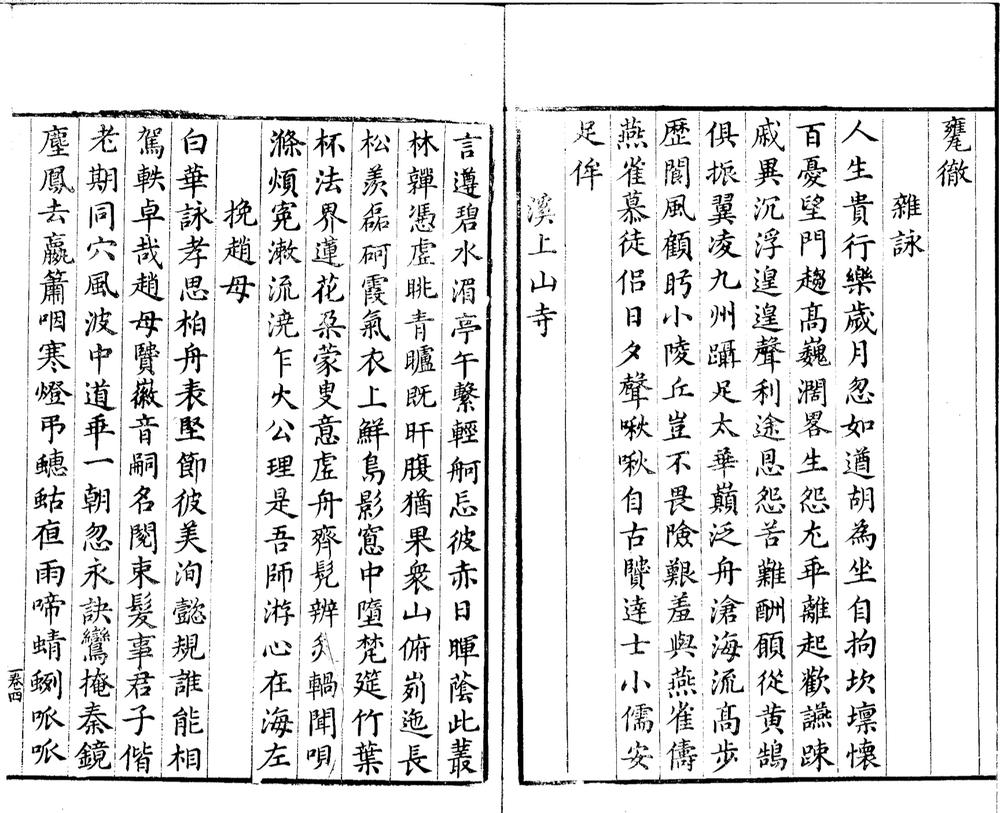 甕徹
雜詠
人生貴行樂歲月忽如遒胡為坐自拘坎壈懷
百憂望門趨高巍濶畧生怨尤乖離起歡讌踈
戚異沉浮遑遑聲利途恩怨苦難酬願從黄鵠
俱振翼凌九州躡足太華巔泛舟滄海流高步
歷閬風顧眄小陵丘豈不畏險艱羞與燕雀儔
燕雀慕徒侣日夕聲啾啾自古贒達士小儒安
足侔
溪上山寺
言遵碧水湄亭午繫輕舸忘彼赤日暉蔭此叢
林嚲憑虛眺青曠既旰腹猶果衆山俯峛迤長
松羨磊砢霞氣衣上鮮鳥影窻中墮梵筵竹葉
杯法界蓮花朶蒙叟意虛舟齊髡辨炙輠聞唄
滌煩寃漱流澆乍火公理是吾師游心在海左
挽趙母
白華詠孝思柏舟表堅節彼美洵懿規誰能相
駕軼卓哉趙母贒徽音嗣名閥束髮事君子偕
老期同穴風波中道乖一朝忽永訣鸞掩秦鏡
塵鳳去嬴簫咽寒燈弔蟪蛄夜雨啼蜻蛚呱呱
卷四